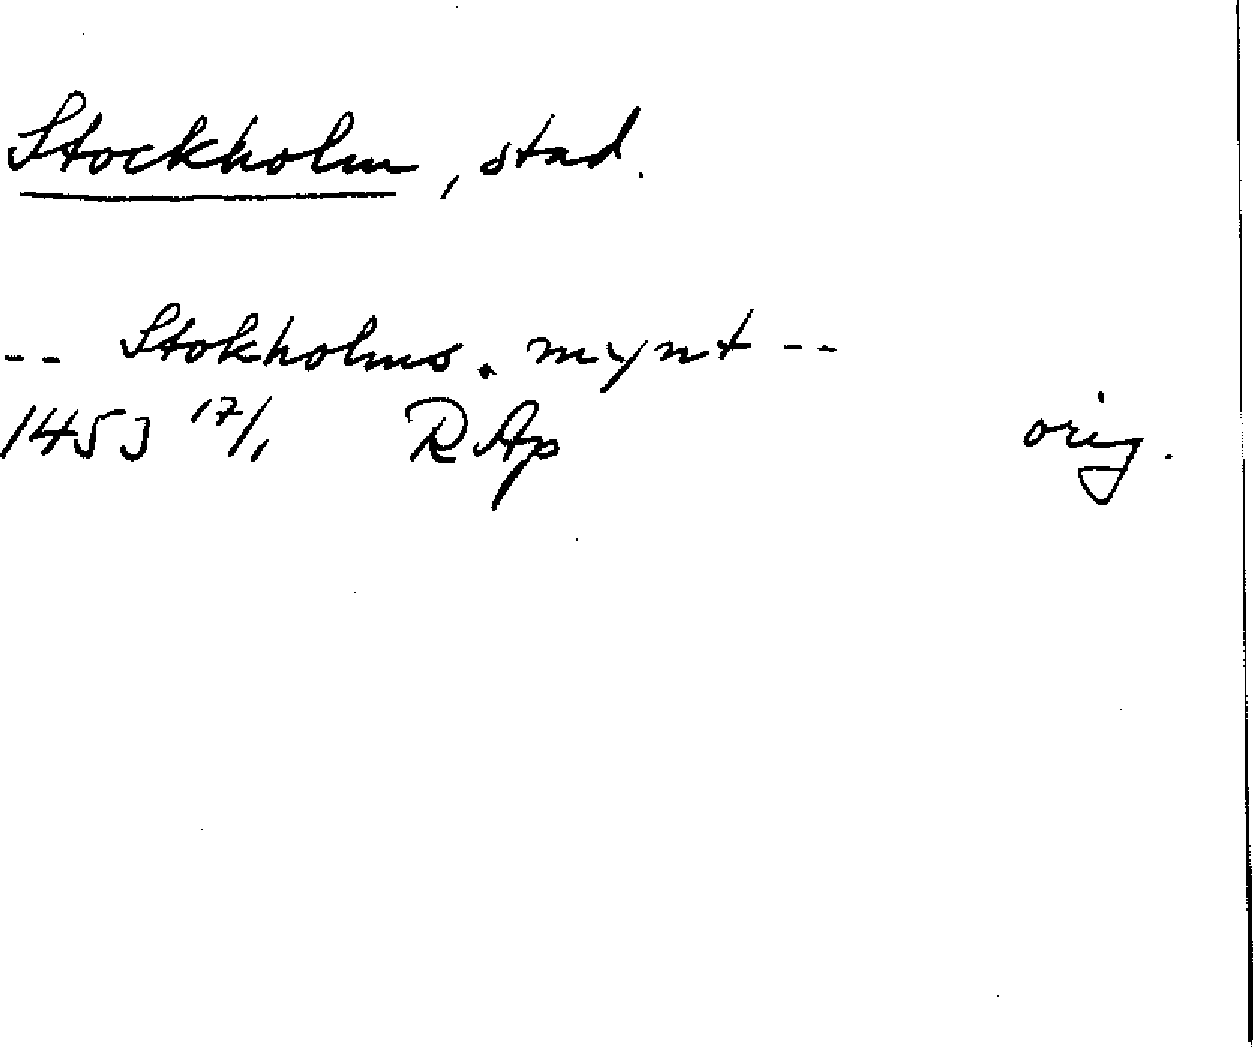 Stockholm, stad.
-- Stokholms. mynt --
1453 17/1 RAp orig.